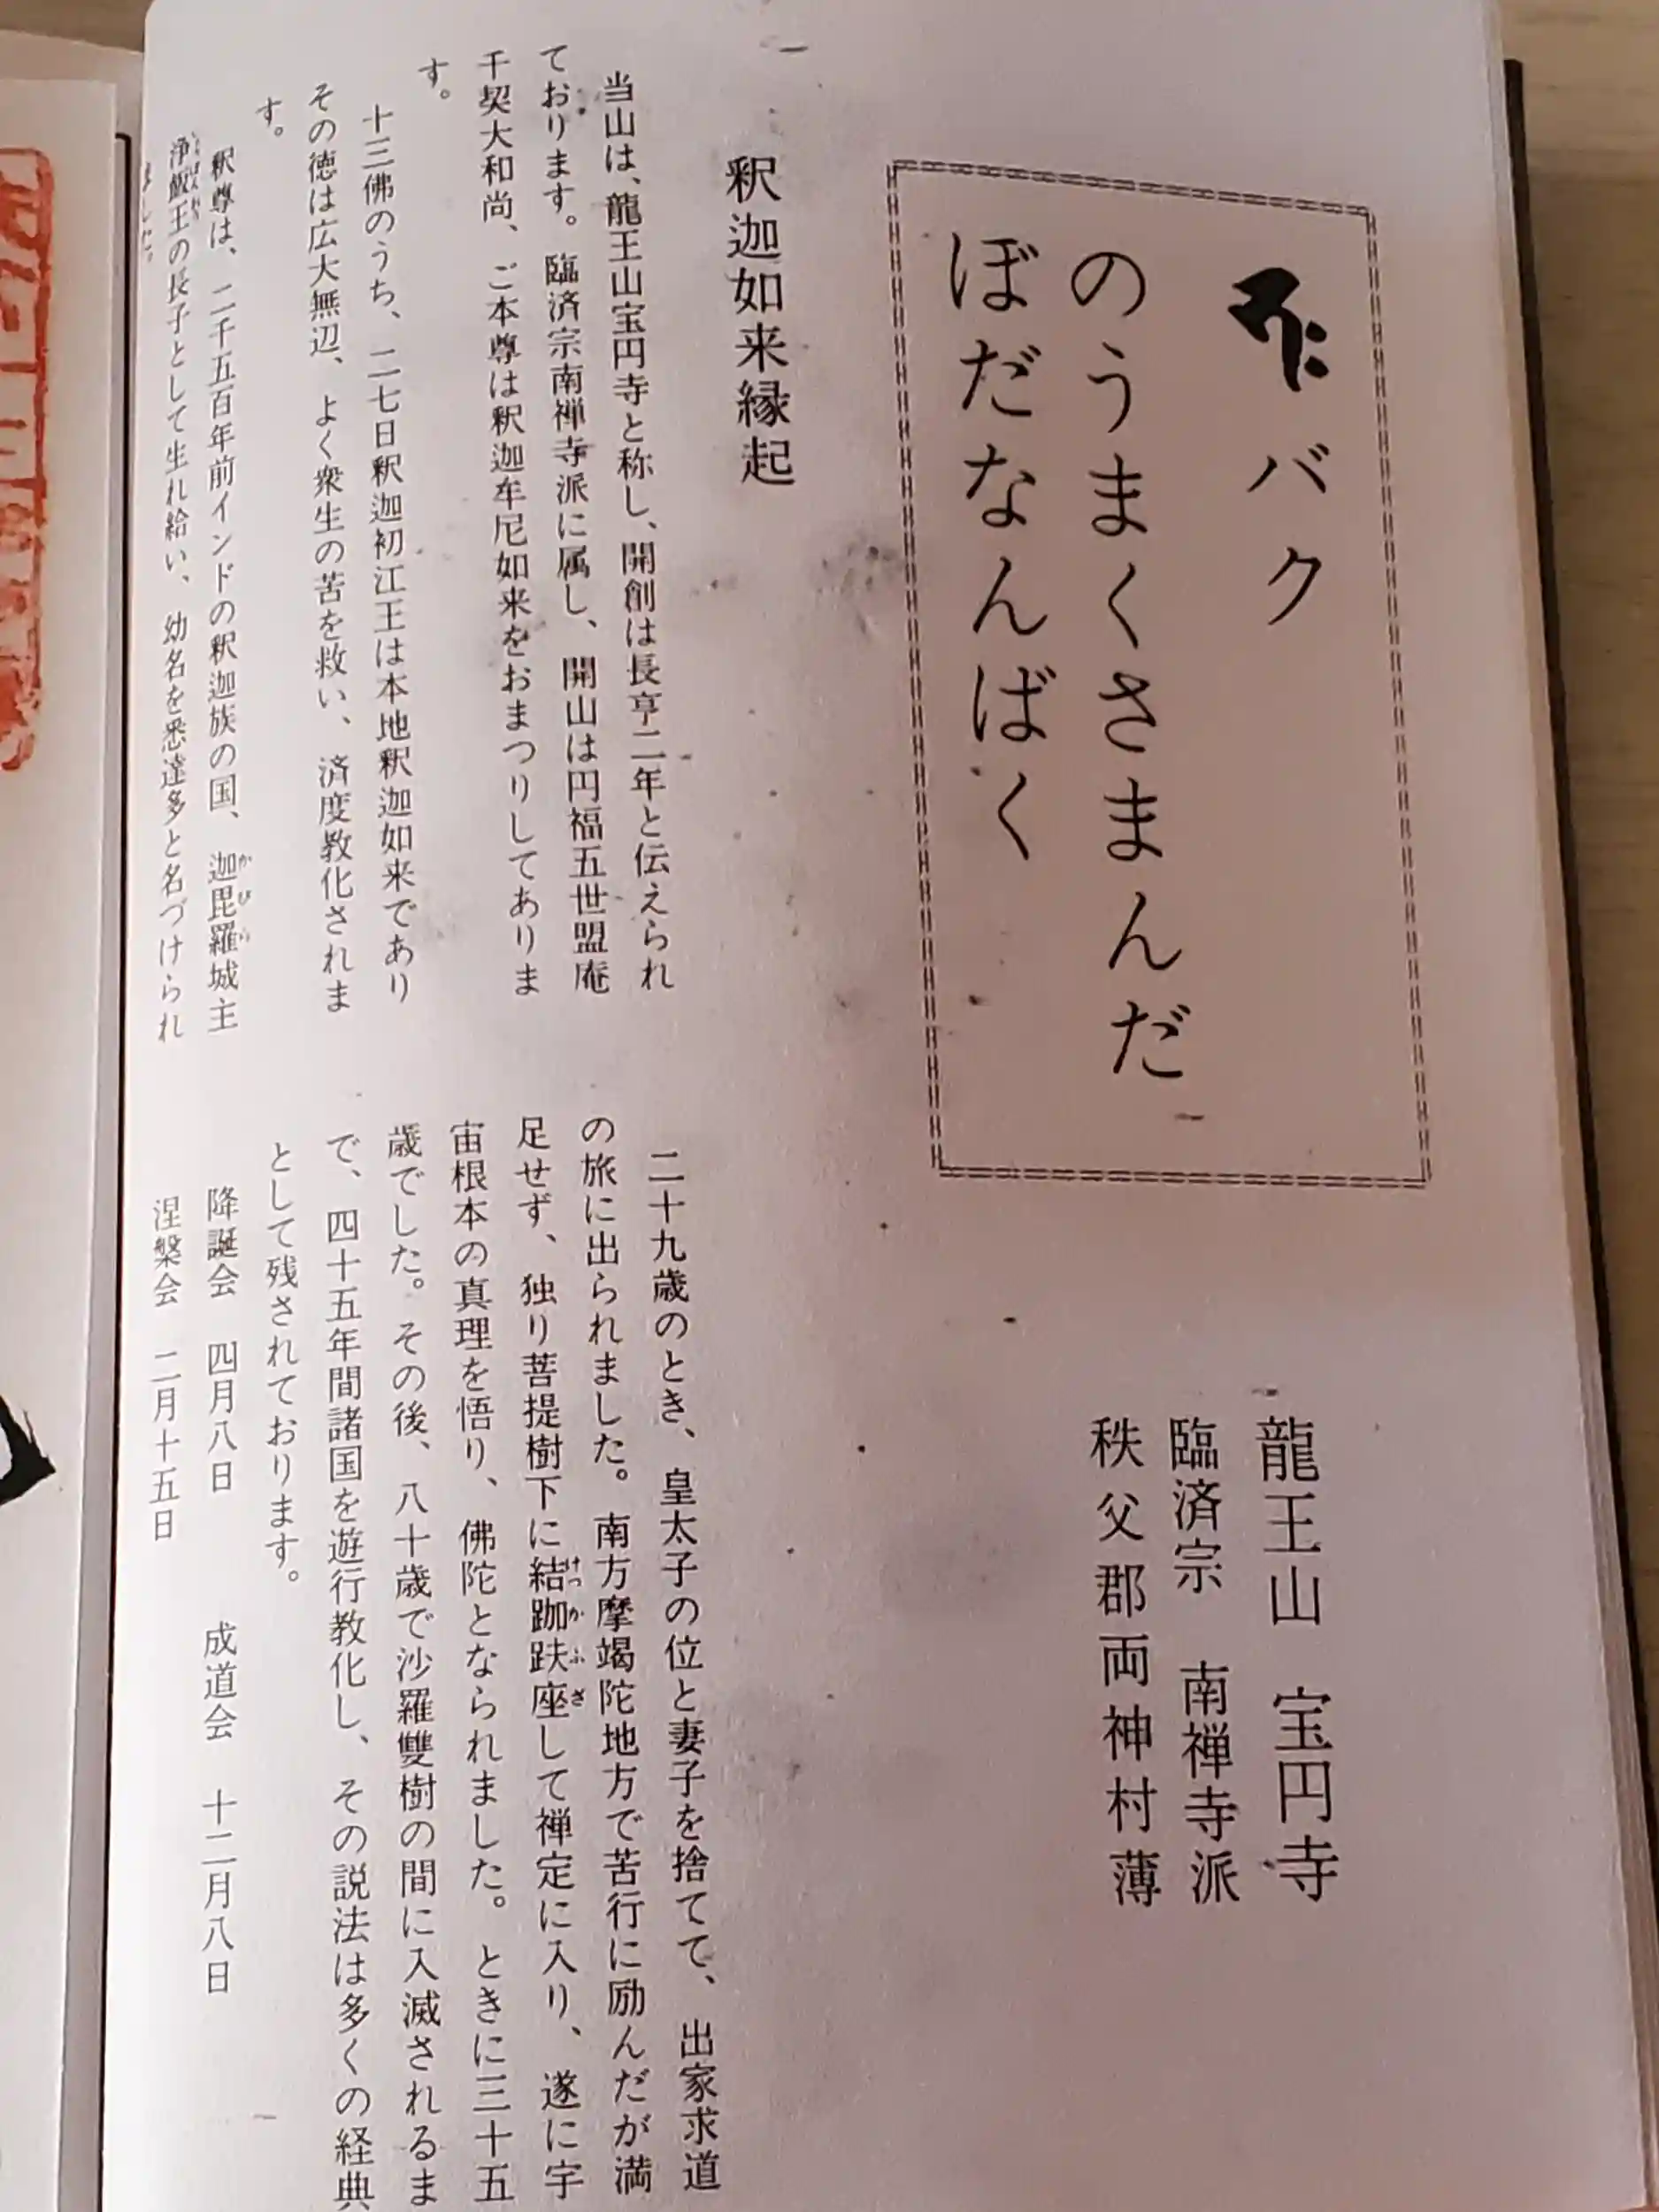 バク
のうまくさまんだ
ぼだなんばく
龍王山　宝円寺
臨済宗　南禅寺派
秩父郡両神村薄
釈迦如来縁起
当山は、龍王山宝円寺と称し、開創は長亨二年と伝えられ
ております。臨済宗南禅寺派に属し、開山は円福五世盟庵
千契大和尚、ご本尊は釈迦牟尼如来をおまつりしてありま
す。
十三佛のうち、二七日釈迦初江王は本地釈迦如来であり
その徳は広大無辺、よく衆生の苦を救い、済度教化されま
す。
釈尊は、二千五百年前インドの釈迦族の国、迦毘羅城主
浄飯王の長子として生れ給い、幼名を悉達多と名づけられ
ました。
二十九歳のとき、皇太子の位と妻子を捨てて、出家求道
の旅に出られました。南方摩竭陀地方で苦行に励んだが満
足せず、独り菩提樹下に結跏趺座して禅定に入り、遂に宇
宙根本の真理を悟り、佛陀となられました。ときに三十五
歳でした。その後、八十歳で沙羅雙樹の間に入滅されるま
で、四十五年間諸国を遊行教化し、その説法は多くの経典
として残されております。
降誕会　四月八日　成道会　十二月八日
涅槃会　二月十五日